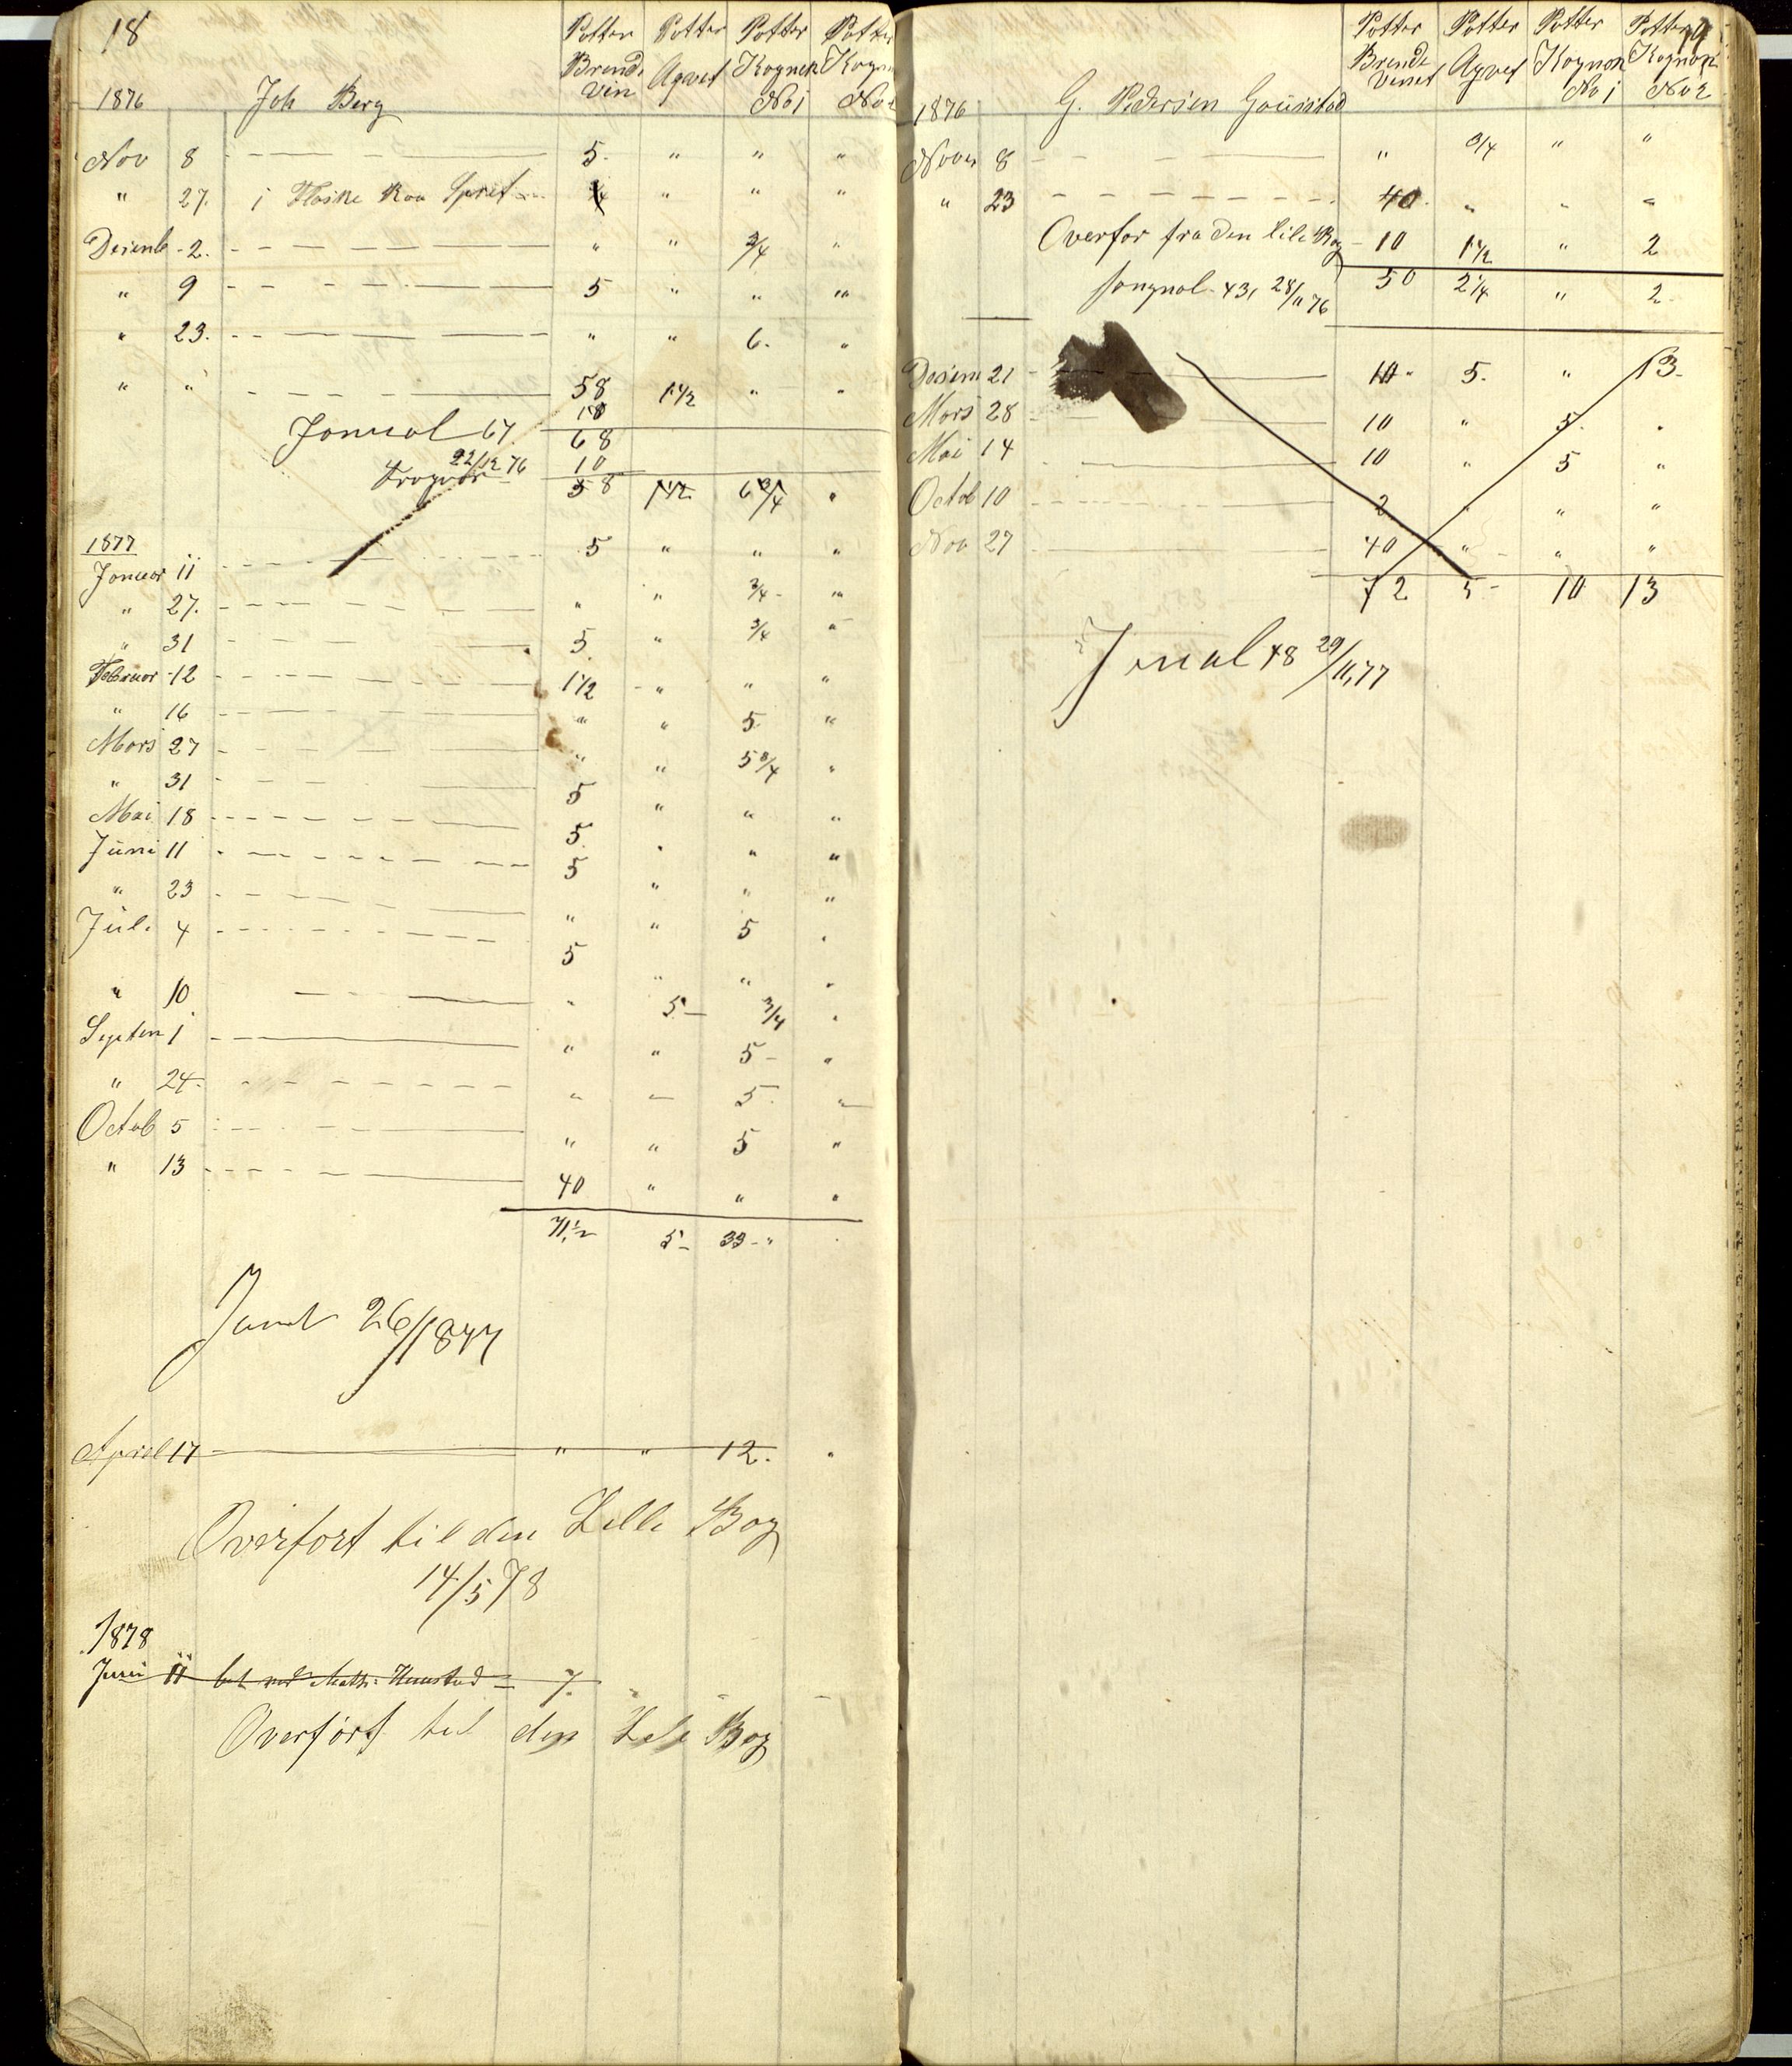 18
Potter Potter Potter Potter
Brende Agvet Kognek Kogn
vin No 1 No 2
1876 Joh Berg
Nov 8 5. " " "
" 27. i Flaske Raa Spret " " "
Desemb 2. " " 3/4 "
" 9 5 " " "
" 23. " " 6. "
" " 58 1 1/2 " "
10
Jonual 67 68
22/12 76 10
58 1 1/2 6 3/4 "
1877
Januar 11 5 " " "
" 27. " " 3/4 "
" 31 5 " 3/4 "
Februar 12 1 1/2 " " "
" 16 " " 5. "
Mars 27 " " 5 3/4 "
" 31 5 " " "
Mai 18 5. " " "
Juni 11 5 " " "
" 23 " " 5 "
Juli 4 5 " " "
" 10 " 5 3/4 "
Septem 1 " " 5 "
" 24 " " 5. "
Octob 5 " " 5 "
" 13 40 " " "
71 1/2 5 33 "
26/1877
April 17 " " 12. "
Overfort til den Lille Bog
14/5 78
1878
Juni 11 7.
Overfort til den Lile Bog
19
Potter Potter Potter Potter
Brende Agvet Kognak Kognak
vinet No 1 No 2
1876 G. Pedersen Gaustad
Novem 8 " 3/4 " "
" 23 40 " " "
Overfor fra den lile Bog 10 1 1/2 " 2
43, 28/11 76 50 2 1/4 " 2
Desem 21 10 5. " 13
Mars 28 10 " 5. "
Mai 14 10 " 5 "
Octob 10 2 " " "
Nov 27 40 " " "
72 5 10 13
48 29/11,77